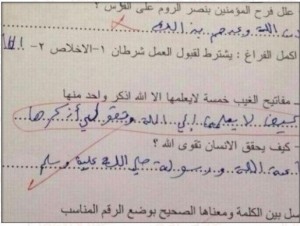 علل فرح المؤمنين بنصر الروم على الفرس ؟
الله وعدهم بذلك
اكمل الفراغ : يشترط لقبول العمل شرطان ١-الاخلاص ٢-
مفاتيح الغيب خمسة لايعلمها الا الله اذكر واحد منها
كيف لا يعلمها إلى الله وحقو لمني أذكرها
- كيف يحقق الانسان تقوى الله ؟
الله ورسولة صلي الله علية وسلم
صل بين الكلمة ومعناها الصحيح بوضع الرقم المناسب